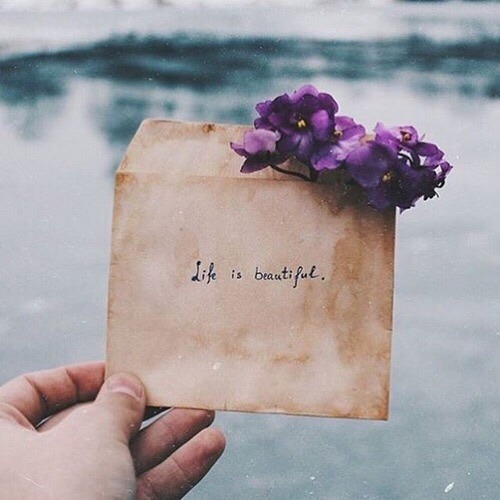 Life is beautiful.